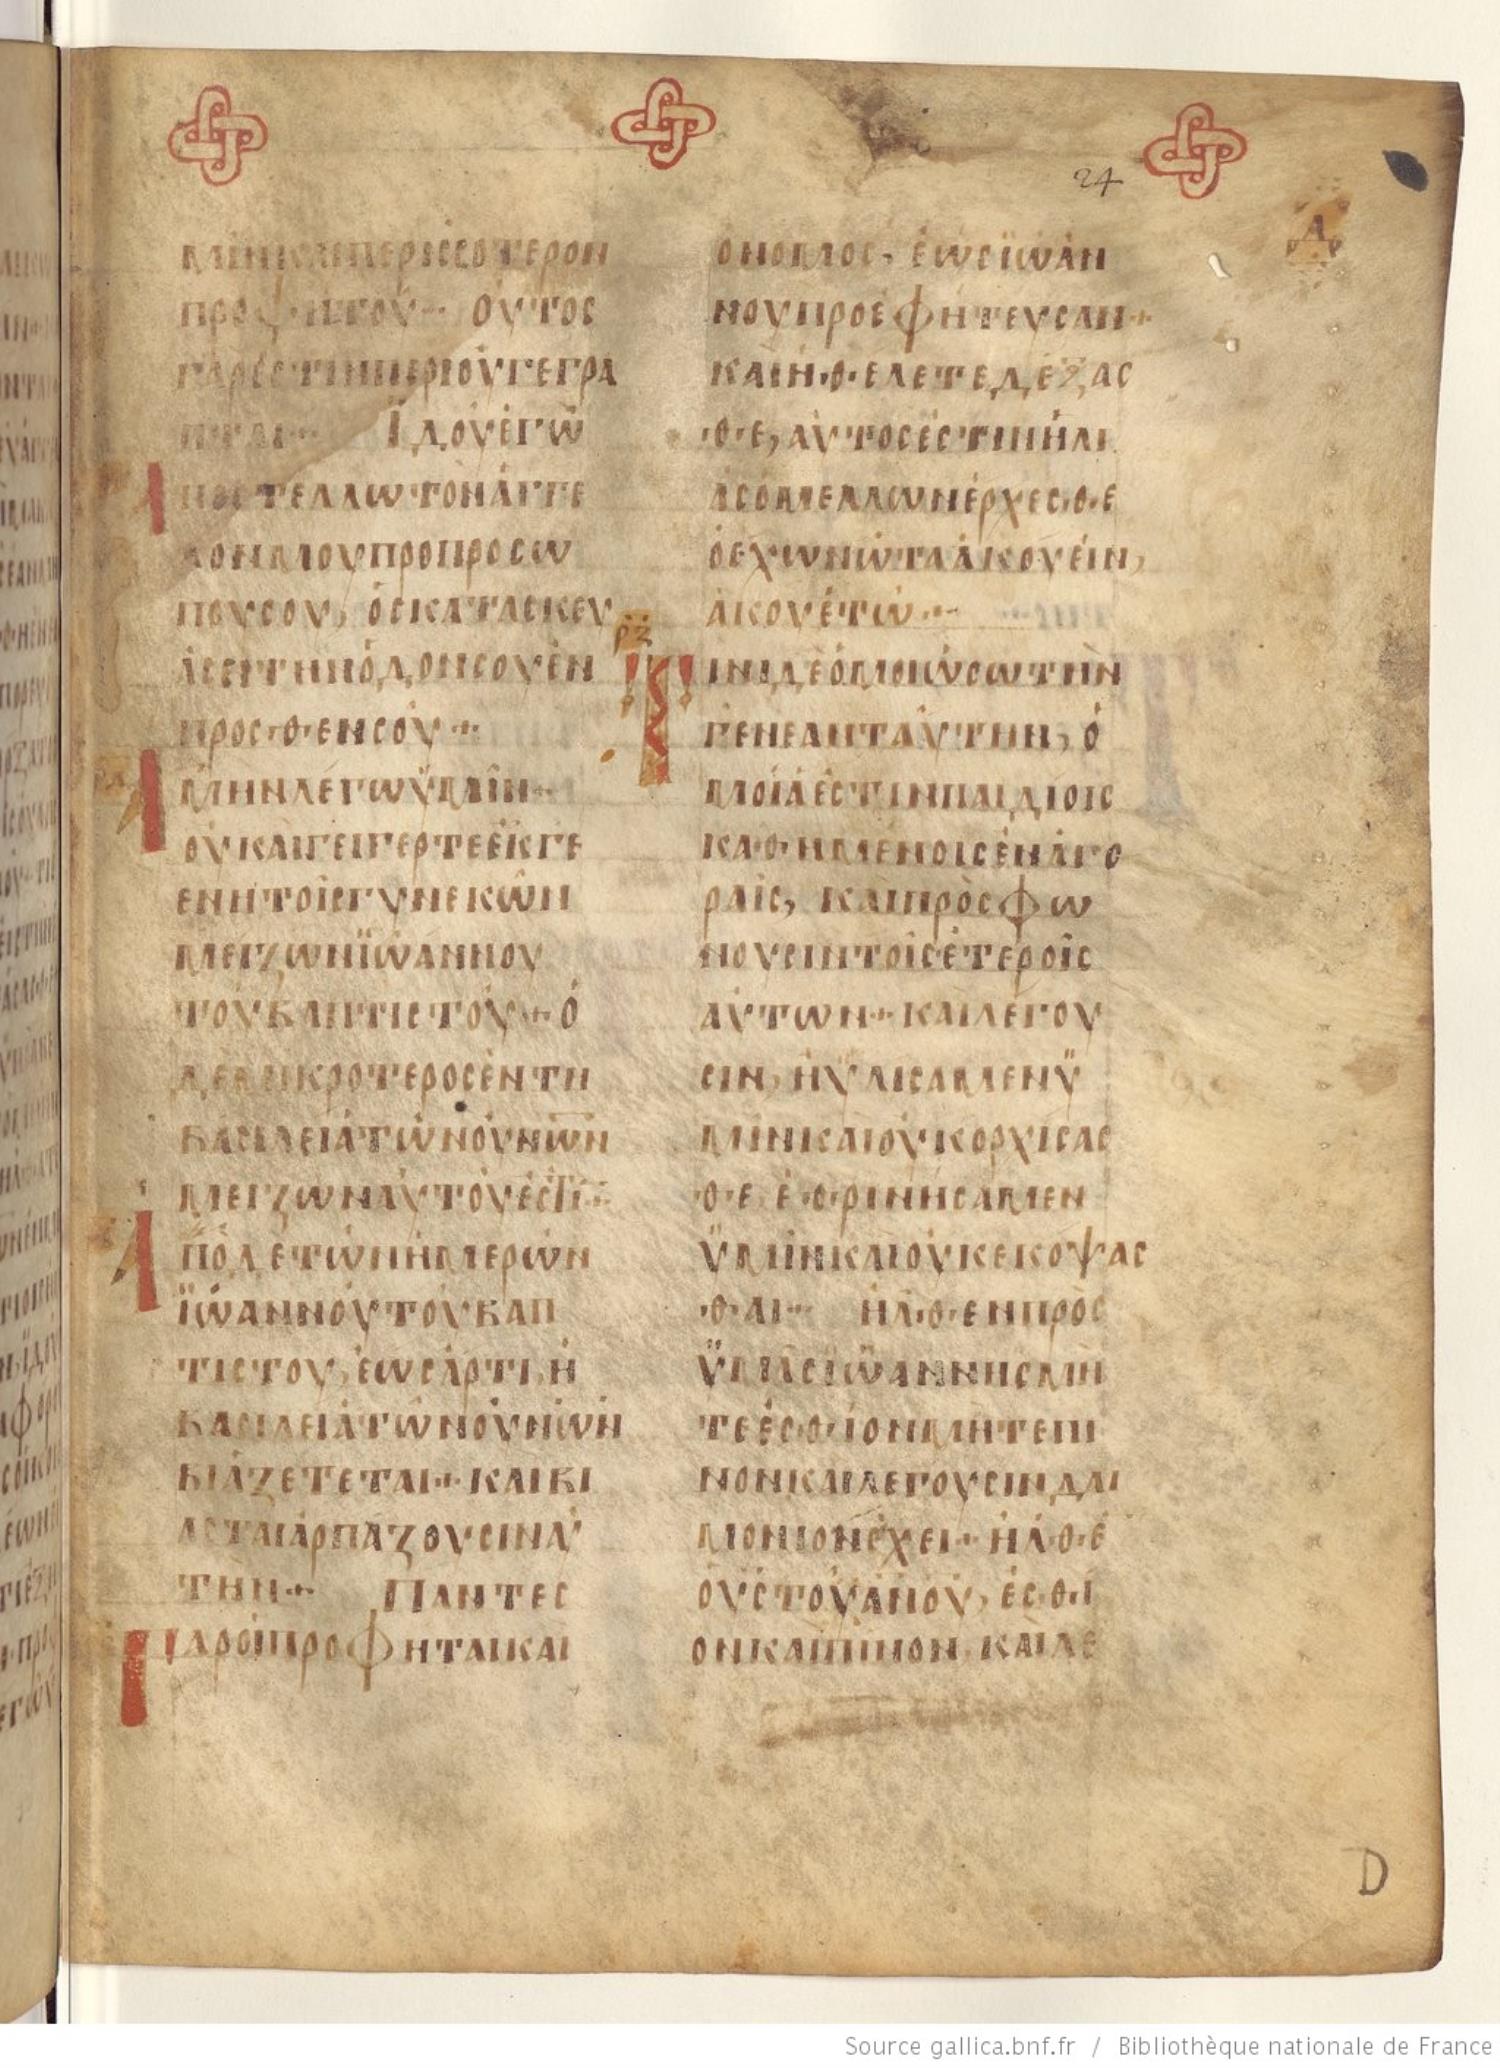 24
Δ
ΜΙΝΚΑΙΠΕΡΙССΟΤΕΡΟΝ
ΠΡΟΦΗΤΟΥ·· ΟΥΤΟС
ΓΑΡΕСΤΙΝΠΕΡΙΟΥΓΕΓΡΑ
ΠΤΑΙ·· ΪΔΟΥΕΓΩ
ΠΟСΤΕΛΛΩΤΟΝΑΓΓΕ
ΛΟΝΜΟΥΠΡΟΠΡΟСΩ
ΠΟΥСΟΥ, ΟСΚΑΤΑСΚΕΥ
ΑСΕΙΤΗΝΟΔΟΝСΟΥΕΝ
ΠΡΟСΘΕΝСΟΥ··
ΜΗΝΛΕΓΩΫΜΙΝ··
ΟΥΚΑΙΓΕΙΓΕΡΤΕΕΚΓΕ
ΕΝΗΤΟΙСΓΥΝΕΚΩΝ
ΜΕΙΖΩΝΪΩΑΝΝΟΥ
ΤΟΥΒΑΠΤΙСΤΟΥ·· Ο
ΔΕΜΙΚΡΟΤΕΡΟСΕΝΤΗ
ΒΑСΙΛΕΙΑΤΩΝΟΥΝΩΝ
ΜΕΙΖΩΝΑΥΤΟΥΕСΤΙ··
ΠΟΔΕΤΩΝΗΜΕΡΩΝ
ΪΩΑΝΝΟΥΤΟΥΒΑΠ
ΤΙСΤΟΥ, ΕΩСΑΡΤΙ, Η
ΒΑСΙΛΕΙΑΤΩΝΟΥΝΩΝ
ΒΙΑΖΕΤΕΤΑΙ·· ΚΑΙΒΙ
ΑСΤΑΙΑΡΠΑΖΟΥСΙΝΑΥ
ΤΗΝ·· ΠΑΝΤΕС
ΓΑΡΟΙΠΡΟΦΗΤΑΙΚΑΙ
ΟΝΟΜΟС, ΕΩСΪΩΑΝ
ΝΟΥΠΡΟΕΦΗΤΕΥСΑΝ··
ΚΑΙΗΘΕΛΕΤΕΔΕΞΑС
ΘΕ, ΑΥΤΟСΕСΤΙΝΗΛΙ
ΑСΟΜΕΛΛΩΝΕΡΧΕСΘΕ
ΟΕΧΩΝΩΤΑΑΚΟΥΕΙΝ,
ΑΚΟΥΕΤΩ··
ΡΖ
ΤΙΝΙΔΕΟΜΟΙΩСΩΤΗΝ
ΓΕΝΕΑΝΤΑΥΤΗΝ, Ο
ΜΟΙΑΕСΤΙΝΠΑΙΔΙΟΙС
ΚΑΘΗΜΕΝΟΙСΕΝΑΓΟ
ΡΑΙС, ΚΑΙΠΡΟСΦΩ
ΝΟΥСΙΝΤΟΙСΕΤΕΡΟΙС
ΑΥΤΩΝ·· ΚΑΙΛΕΓΟΥ
СΙΝ, ΗΫΛΙСΑΜΕΝΫ
ΜΙΝΚΑΙΟΥΚΟΡΧΙСΑС
ΘΕ ΕΘΡΙΝΗСΑΜΕΝ
ΫΜΙΝΚΑΙΟΥΚΕΚΟΨΑС
ΘΑΙ·· ΗΛΘΕΝΠΡΟС
ΫΜΑСΪΩΑΝΝΗСΜΗ
ΤΕΕСΘΙΟΝΜΗΤΕΠΙ
ΝΟΝΚΑΙΛΕΓΟΥСΙΝΔΑΙ
ΜΟΝΙΟΝΕΧΕΙ·· ΗΛΘΕ
ΟΥСΤΟΥΑΝΟΥ, ΕСΘΙ
ΟΝΚΑΙΠΙΝΟΝ, ΚΑΙΛΕ
D
Source gallica.bnf.fr / Bibliothèque nationale de France